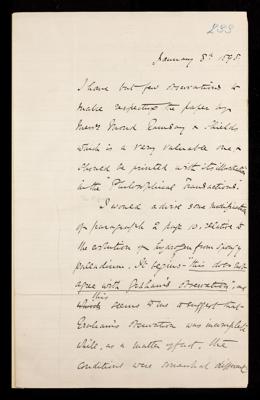 233
January 8th 1898.
I have but few observations to
make respecting the paper by
Messrs Mond Ramsay & Shields
which is a very valuable one &
should be printed with its illustrations
in the Philosophical Transactions.
I would advise some modification
of paragraph 2 page 10, relative to
the evolution of hydrogen from spongy
palladium. It begins - "this does not
agree with Graham's observation", and
this seems to me to suggest that
Graham's observation was incomplete
while, as a matter of fact, the
conditions were somewhat different